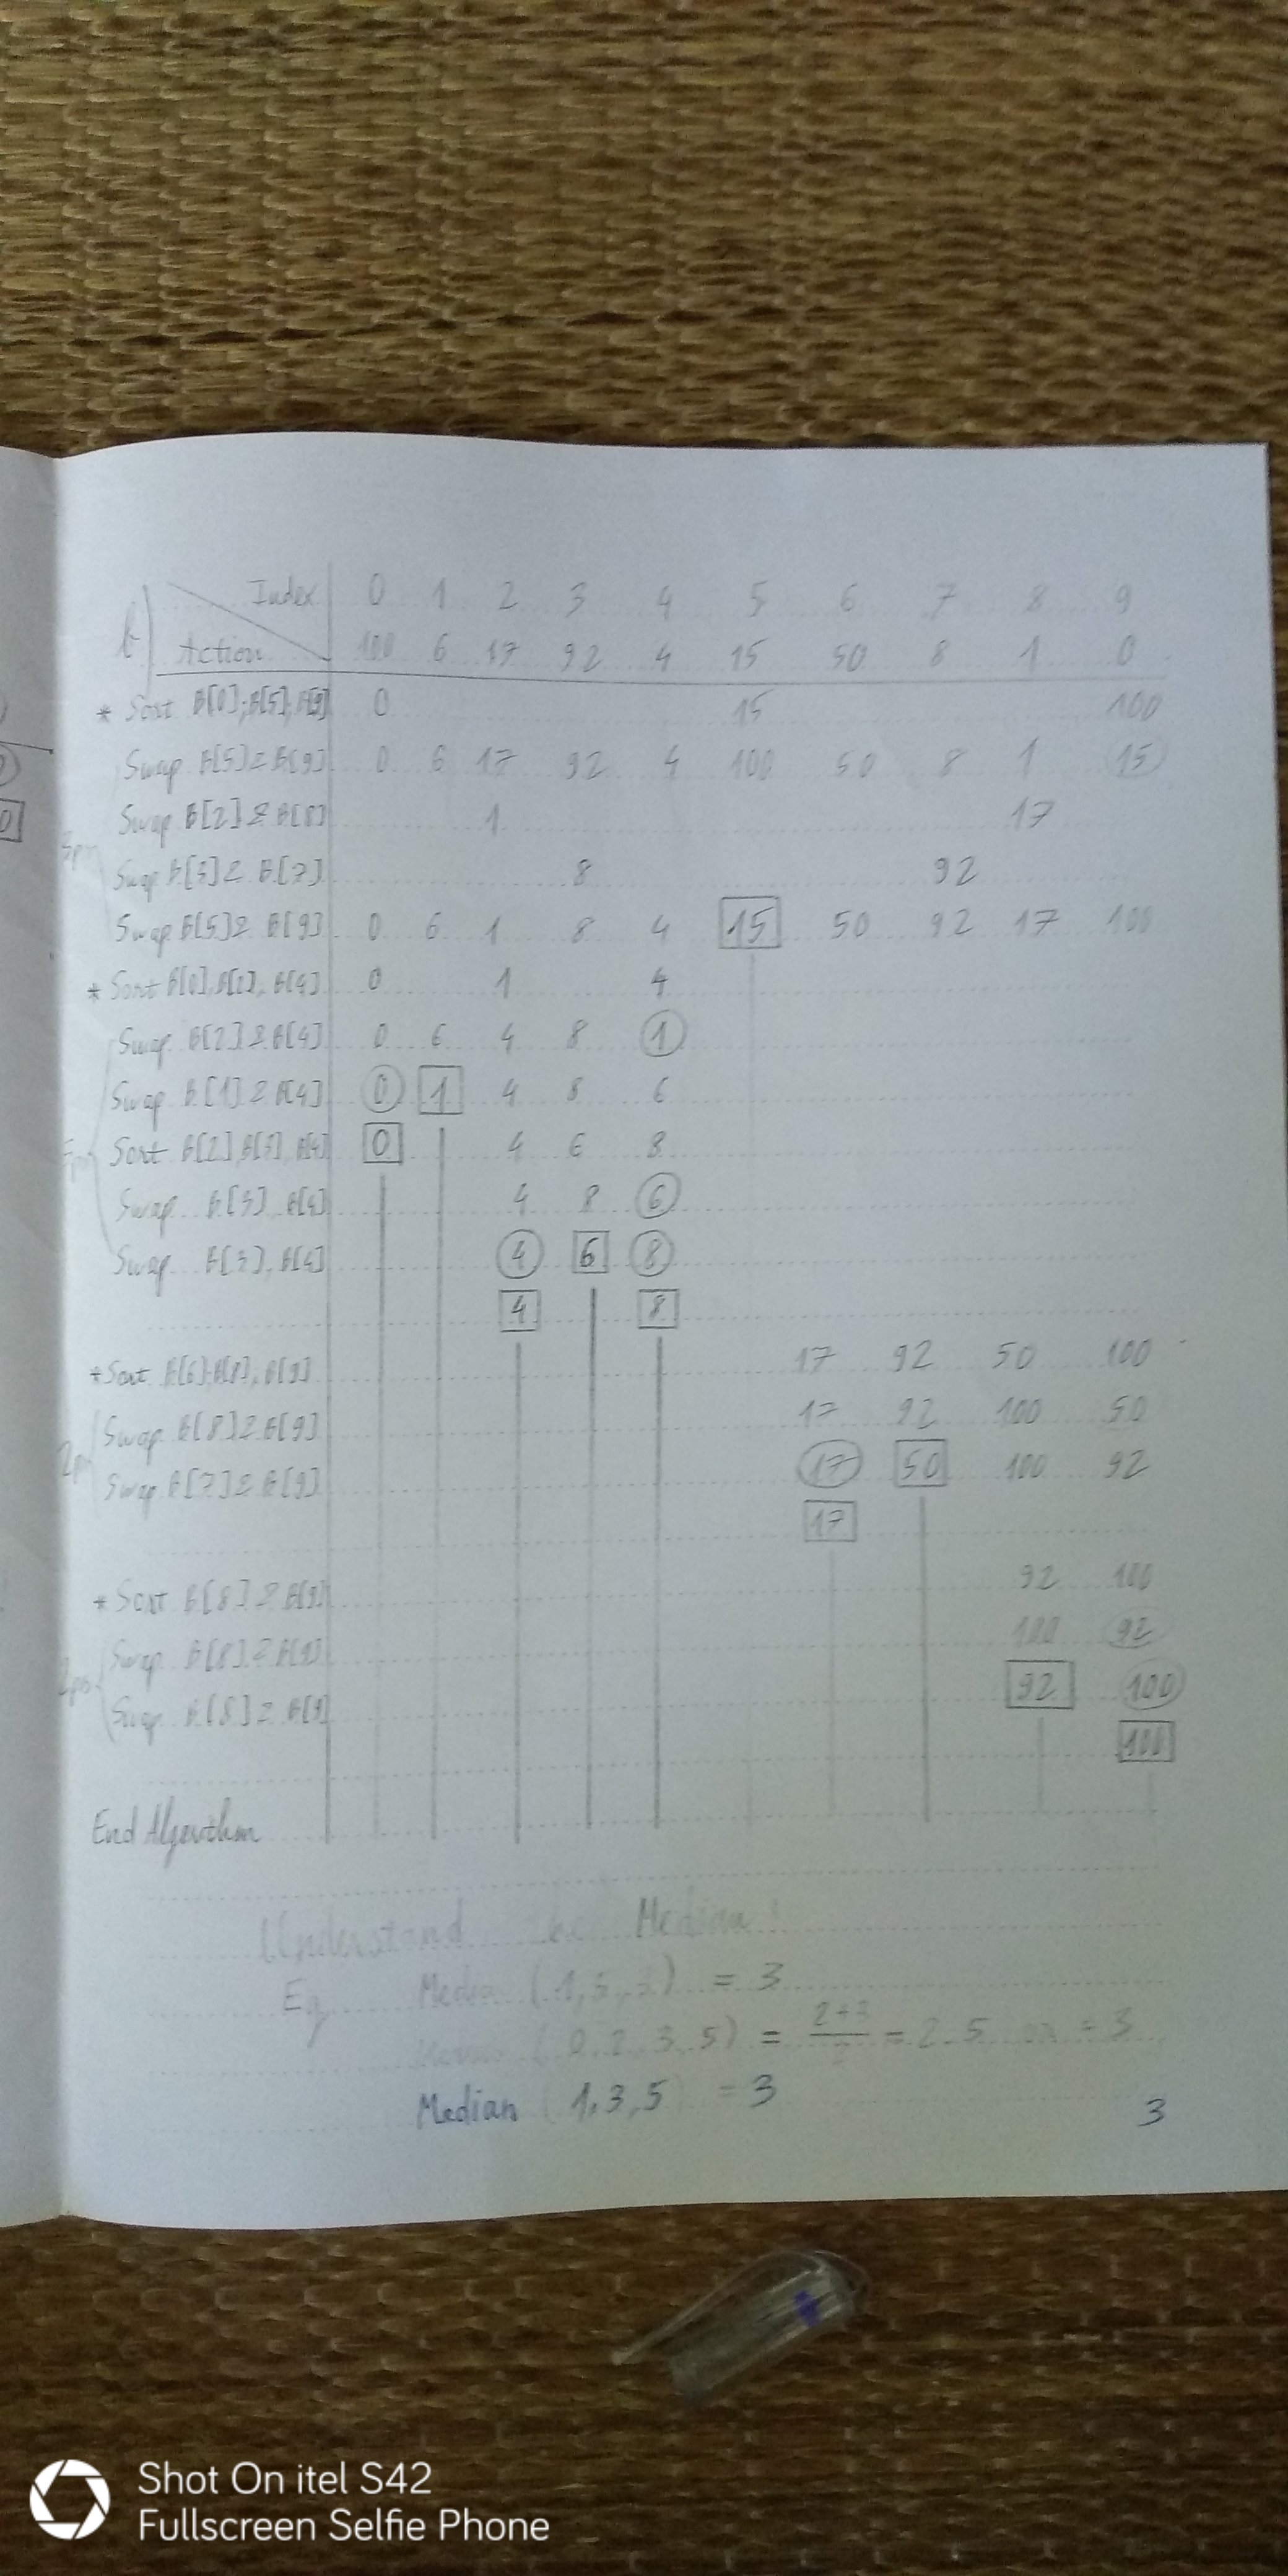 Index 0 1 2 3 4 5 6 7 8 9
b) Action 100 6 17 92 4 15 50 8 1 0
* Sort B[0]; B[5]; B[9] 0 15 100
Swap B[5] & B[9] 0 6 17 92 4 100 50 8 1 15
Swap B[2] & B[8] 1 17
Swap B[3] & B[7] 8 92
Swap B[5] & B[9] 0 6 1 8 4 15 50 92 17 100
* Sort B[0], B[2], B[4] 0 1 4
Swap B[2] & B[4] 0 6 4 8 1
Swap B[1] & B[4] 0 1 4 8 6
Sort B[2], B[3], B[4] 0 4 6 8
Swap B[3], B[4] 4 8 6
Swap B[3], B[4] 4 6 8
4 8
* Sort B[6]; B[8]; B[9] 17 92 50 100
Swap B[8] & B[9] 17 92 100 50
Swap B[7] & B[9] 17 50 100 92
17
* Sort B[8] & B[9] 92 100
Swap B[8] & B[9] 100 92
Swap B[8] & B[9] 92 100
100
End Algorithm
Understand the Median:
Eg Median (1, 5, 3) = 3
(0, 2, 3, 5) = 2+3/2 = 2.5 = 3
Median (1, 3, 5) = 3
3
Shot On itel S42
Fullscreen Selfie Phone